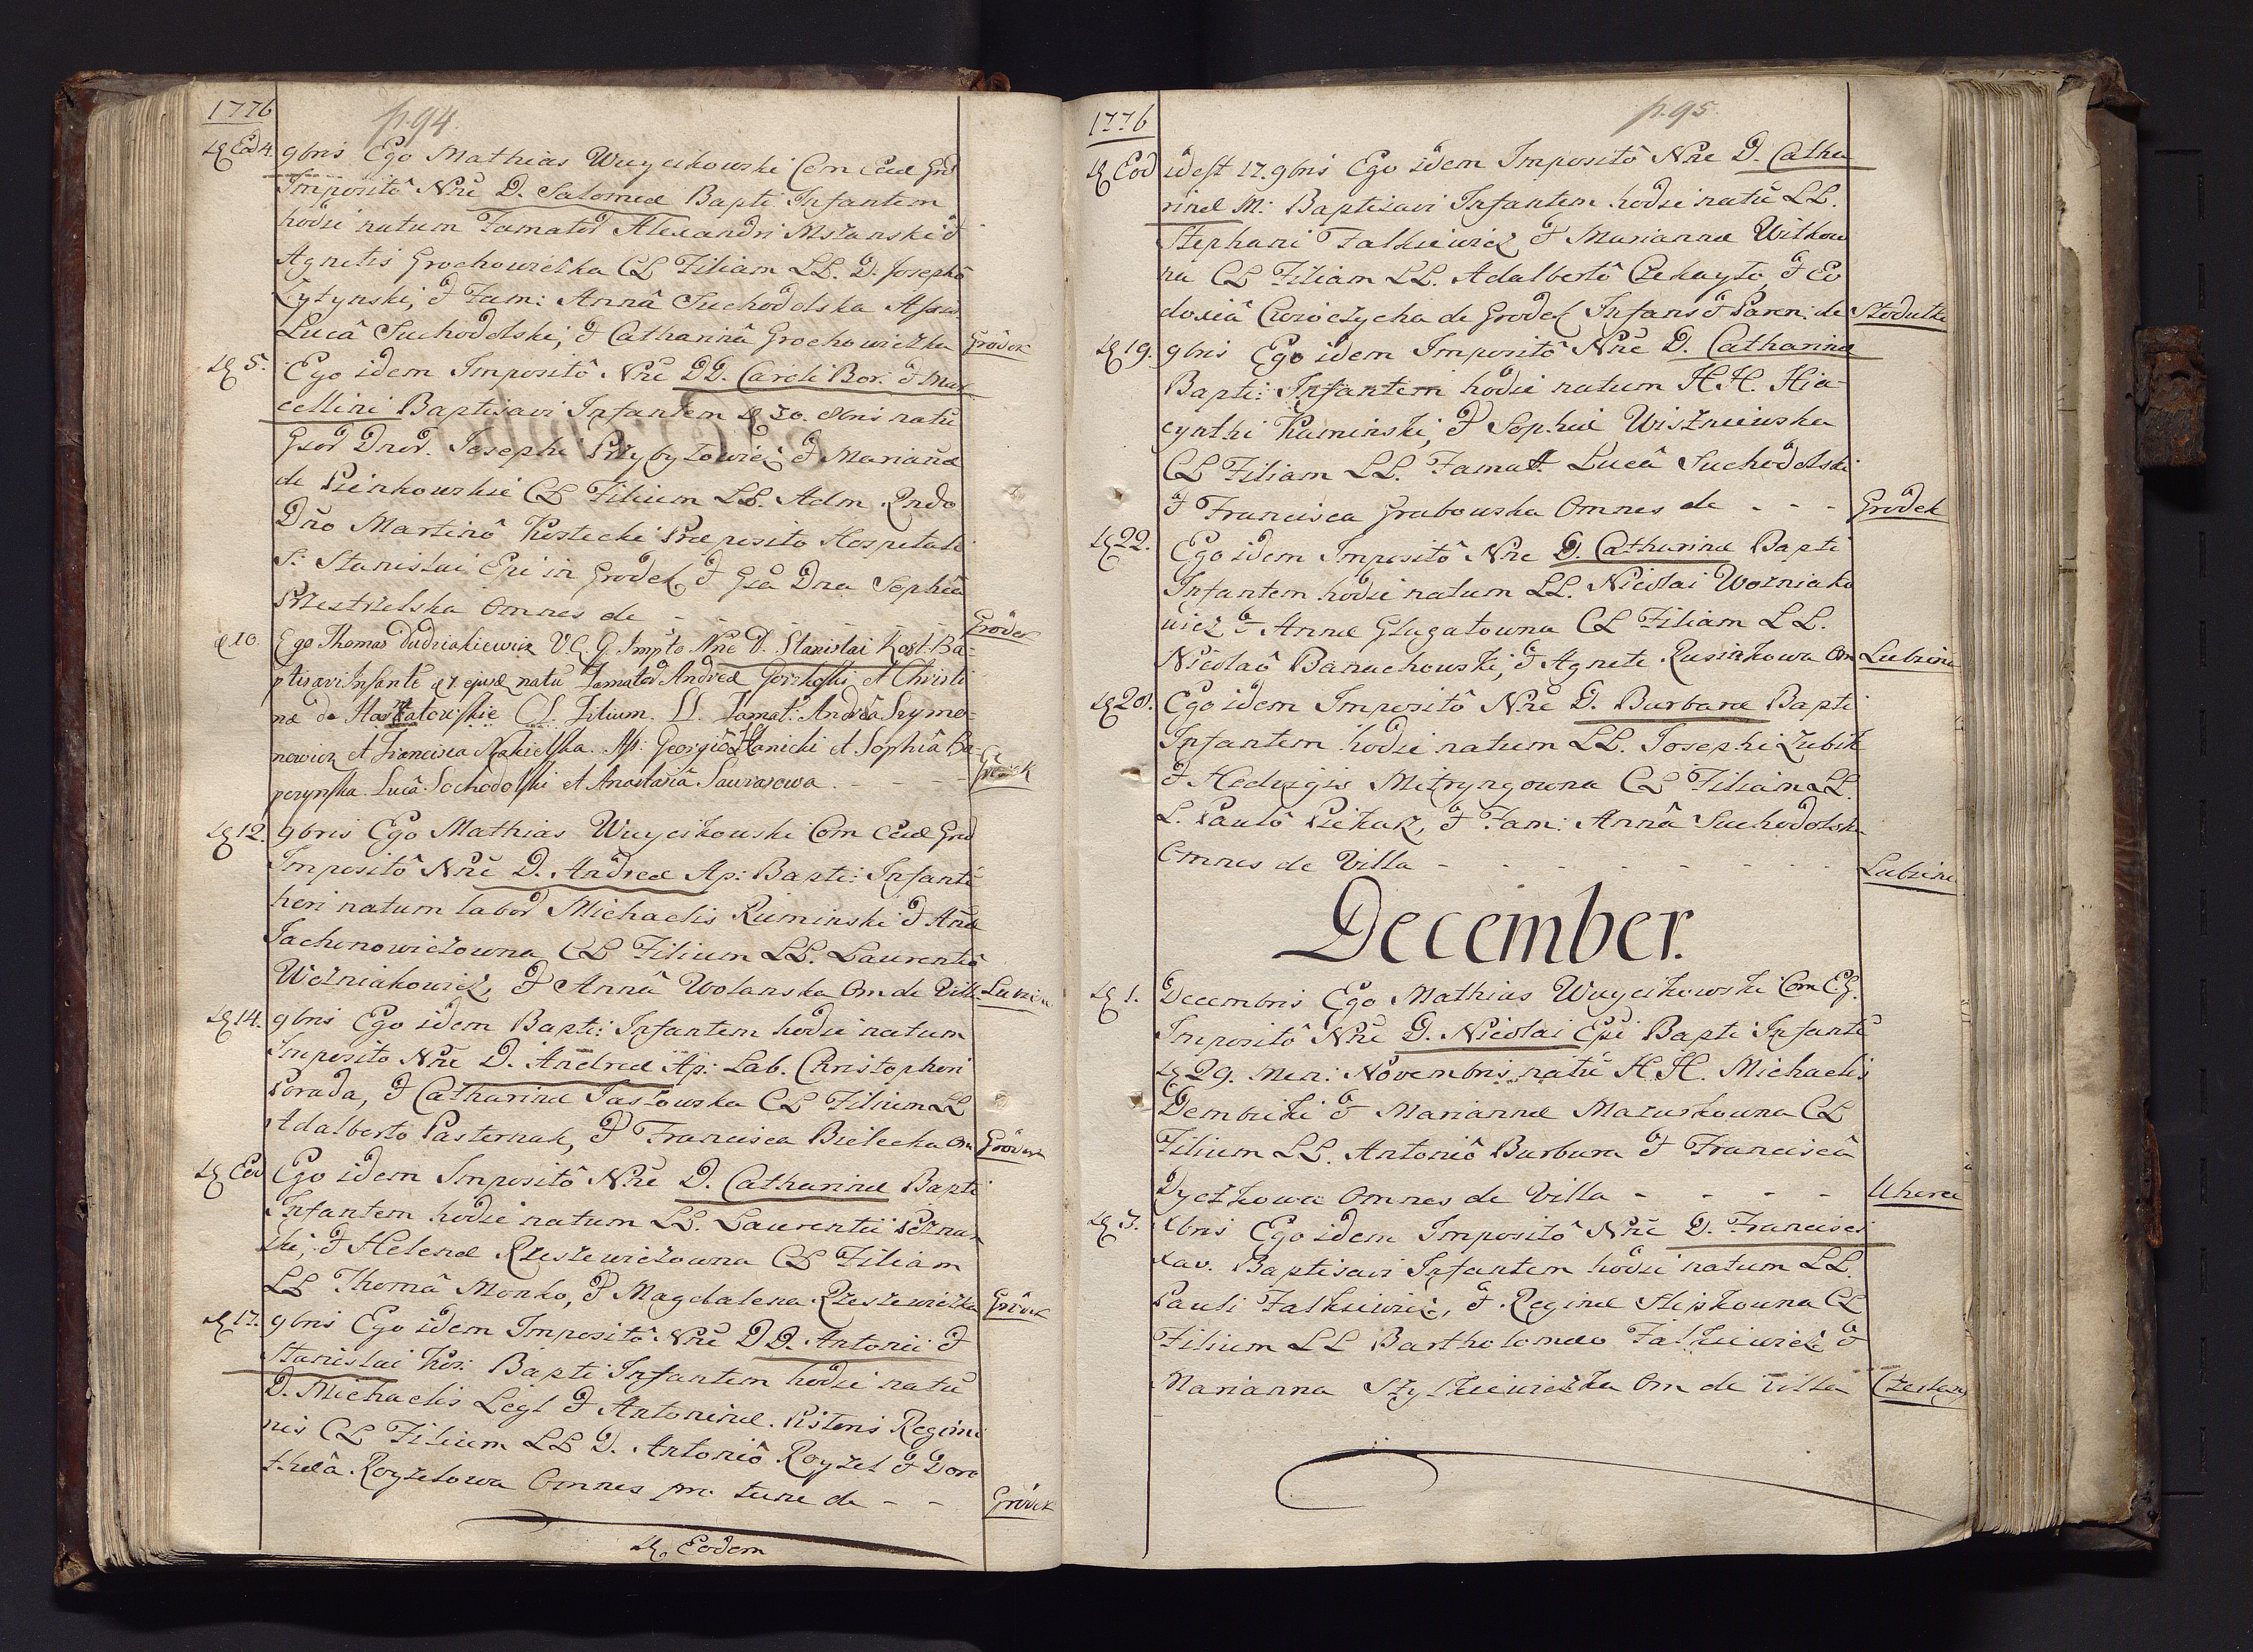 1776
p. 94.
d Eod 4. 9bris Ego Mathias Wuycikowski Com Eccl Grod
Impositô Nñe D. Salomeæ Bapti Infantem
hodie natum Famator Alexandri Mszanski &
Agnetis Grochowiczka CL Filiam LL. D. Josephô
Zyzynski, & Fam: Annâ Suchodolska Assis.
Lucâ Suchodolski, & Catharinâ Grochowiczka Grodek
d 5. Ego idem Impositô Nñe DD. Caroli Bor: & Mar
cellini Baptisavi Infantem d 30. 8bris natũ
Gsor Dnor. Josephi Przybyłowicz & Mariañæ
de Pienkowskie CL Filium LL. Adm. Rndo
Dño Martinô Kostecki Præposito Hospitali
S: Stanislai Epi in Grodek & Gsa Dna Sophiâ
Przestrzelska Omnes de - - - - Grodek
d 10. Ego Thomas Dudziakiewicz V.C.G. Impto Nñe D. Stanislai Kost. Ba=
ptisavi Infantẽ d 7 ejusd natũ Famator Andreæ Gorzkoski et Christi
næ de Hasztatowskie CL. Filium. LL. Famat: Andrea Szymo=
nowicz et Francisca Nakielska. As: Georgiô Hanicki et Sophiâ Ba=
pczynska. Lucâ Sochodolski et Anastasiâ Saurasowa. - - - Grodek
d 12. 9bris Ego Mathias Wuycikowski Com Eccl Grod
Impositô Nñe D. Andreæ Ap: Bapti: Infantẽ
heri natum labor Michaelis Ruminski & Añæ
Jachonowiczowna CL Filium LL. Laurentiô
Wozniakowicz, & Annâ Wolanska Om de Villa Lubzin
d 14. 9bris Ego idem Bapti: Infantem hodie natum
Imposito Nñe D. Andreæ Ap: Lab. Christophori
Porada, & Catharinæ Jasłowska CL Filium LL
Adalberto Pasternak, & Francisca Bielecka Om Grodek
d Eod Ego idem Impositô Nñe D. Catharinæ Bapti
Infantem hodie natum LL. Laurentii Poznan
ski, & Helenæ Rzeszewiczowna CL Filiam
LL Thomâ Monko, & Magdalena Rzeszewiczka Grodek
d 17. 9bris Ego idem Impositô Nñe DD. Antonii &
Stanislai Kos: Bapti Infantem hodie natũ
D. Michaelis Legl & Antoninæ. Pistoris Regimi
nis CL Filium LL D. Antoniô Royzel & Doro
theâ Royzelowa Omnes pro tunc de - - Grodek
d. Eodem
1776
p. 95.
d Eod idest 17. 9bris Ego idem Impositô Nñe D. Catha
rinæ M: Baptisavi Infantem hodie natũ LL.
Stephani Falkiewicz & Mariannæ Witkow
na CL Filiam LL. Adalbertô Czekayło, & Eu
doxiâ Cwioczycha de Grodek Infans & Paren: de Stodulki
d 19. 9bris Ego idem Impositô Nñe D. Catharinæ
Bapti: Infantem hodie natum HH. Hia-
cynthi Kaminski, & Sophiæ Wiszniewska
CL Filiam LL. Famatt. Lucâ Suchodolski
& Francisca Grabowska Omnes de - - - Grodek
d 22. Ego idem Impositô Nñe D. Catharinæ Bapti
Infantem hodie natum LL. Nicolai Wozniako
wicz & Annæ Glugatowna CL Filiam LL.
Nicolaô Banachowski, & Agnete Rusinkowa Om Lubzina
d 28. Ego idem Impositô Nñe D. Barbaræ Bapti
Infantem hodie natum LL. Josephi Zubik
& Hedvigis Mitryngowna CL Filiam LL.
L. Paulô Piekarz, & Fam: Annâ Suchodolska
Omnes de Villa - - - - - - Lubzina
December.
d 1. Decembris Ego Mathias Wuycikowski Com E.G.
Impositô Nñe D. Nicolai Epi Bapti Infantẽ
d 29. men: Novembris natũ HH. Michaelis
Dembicki & Mariannæ Maruszkowna CL
Filium LL. Antoniô Burbura & Franciscâ
Dyczkowa Omnes de Villa - - - - Uherce
d 3. Xbris Ego idem Impositô Nñe D. Francisci
Xav. Baptisavi Infantem hodie natum LL.
Pauli Falkiewicz, & Reginæ Slipkowna CL
Filium LL Bartholomæo Falkiewicz &
Marianna Szylkiewiczka Om de Villa Czerlany